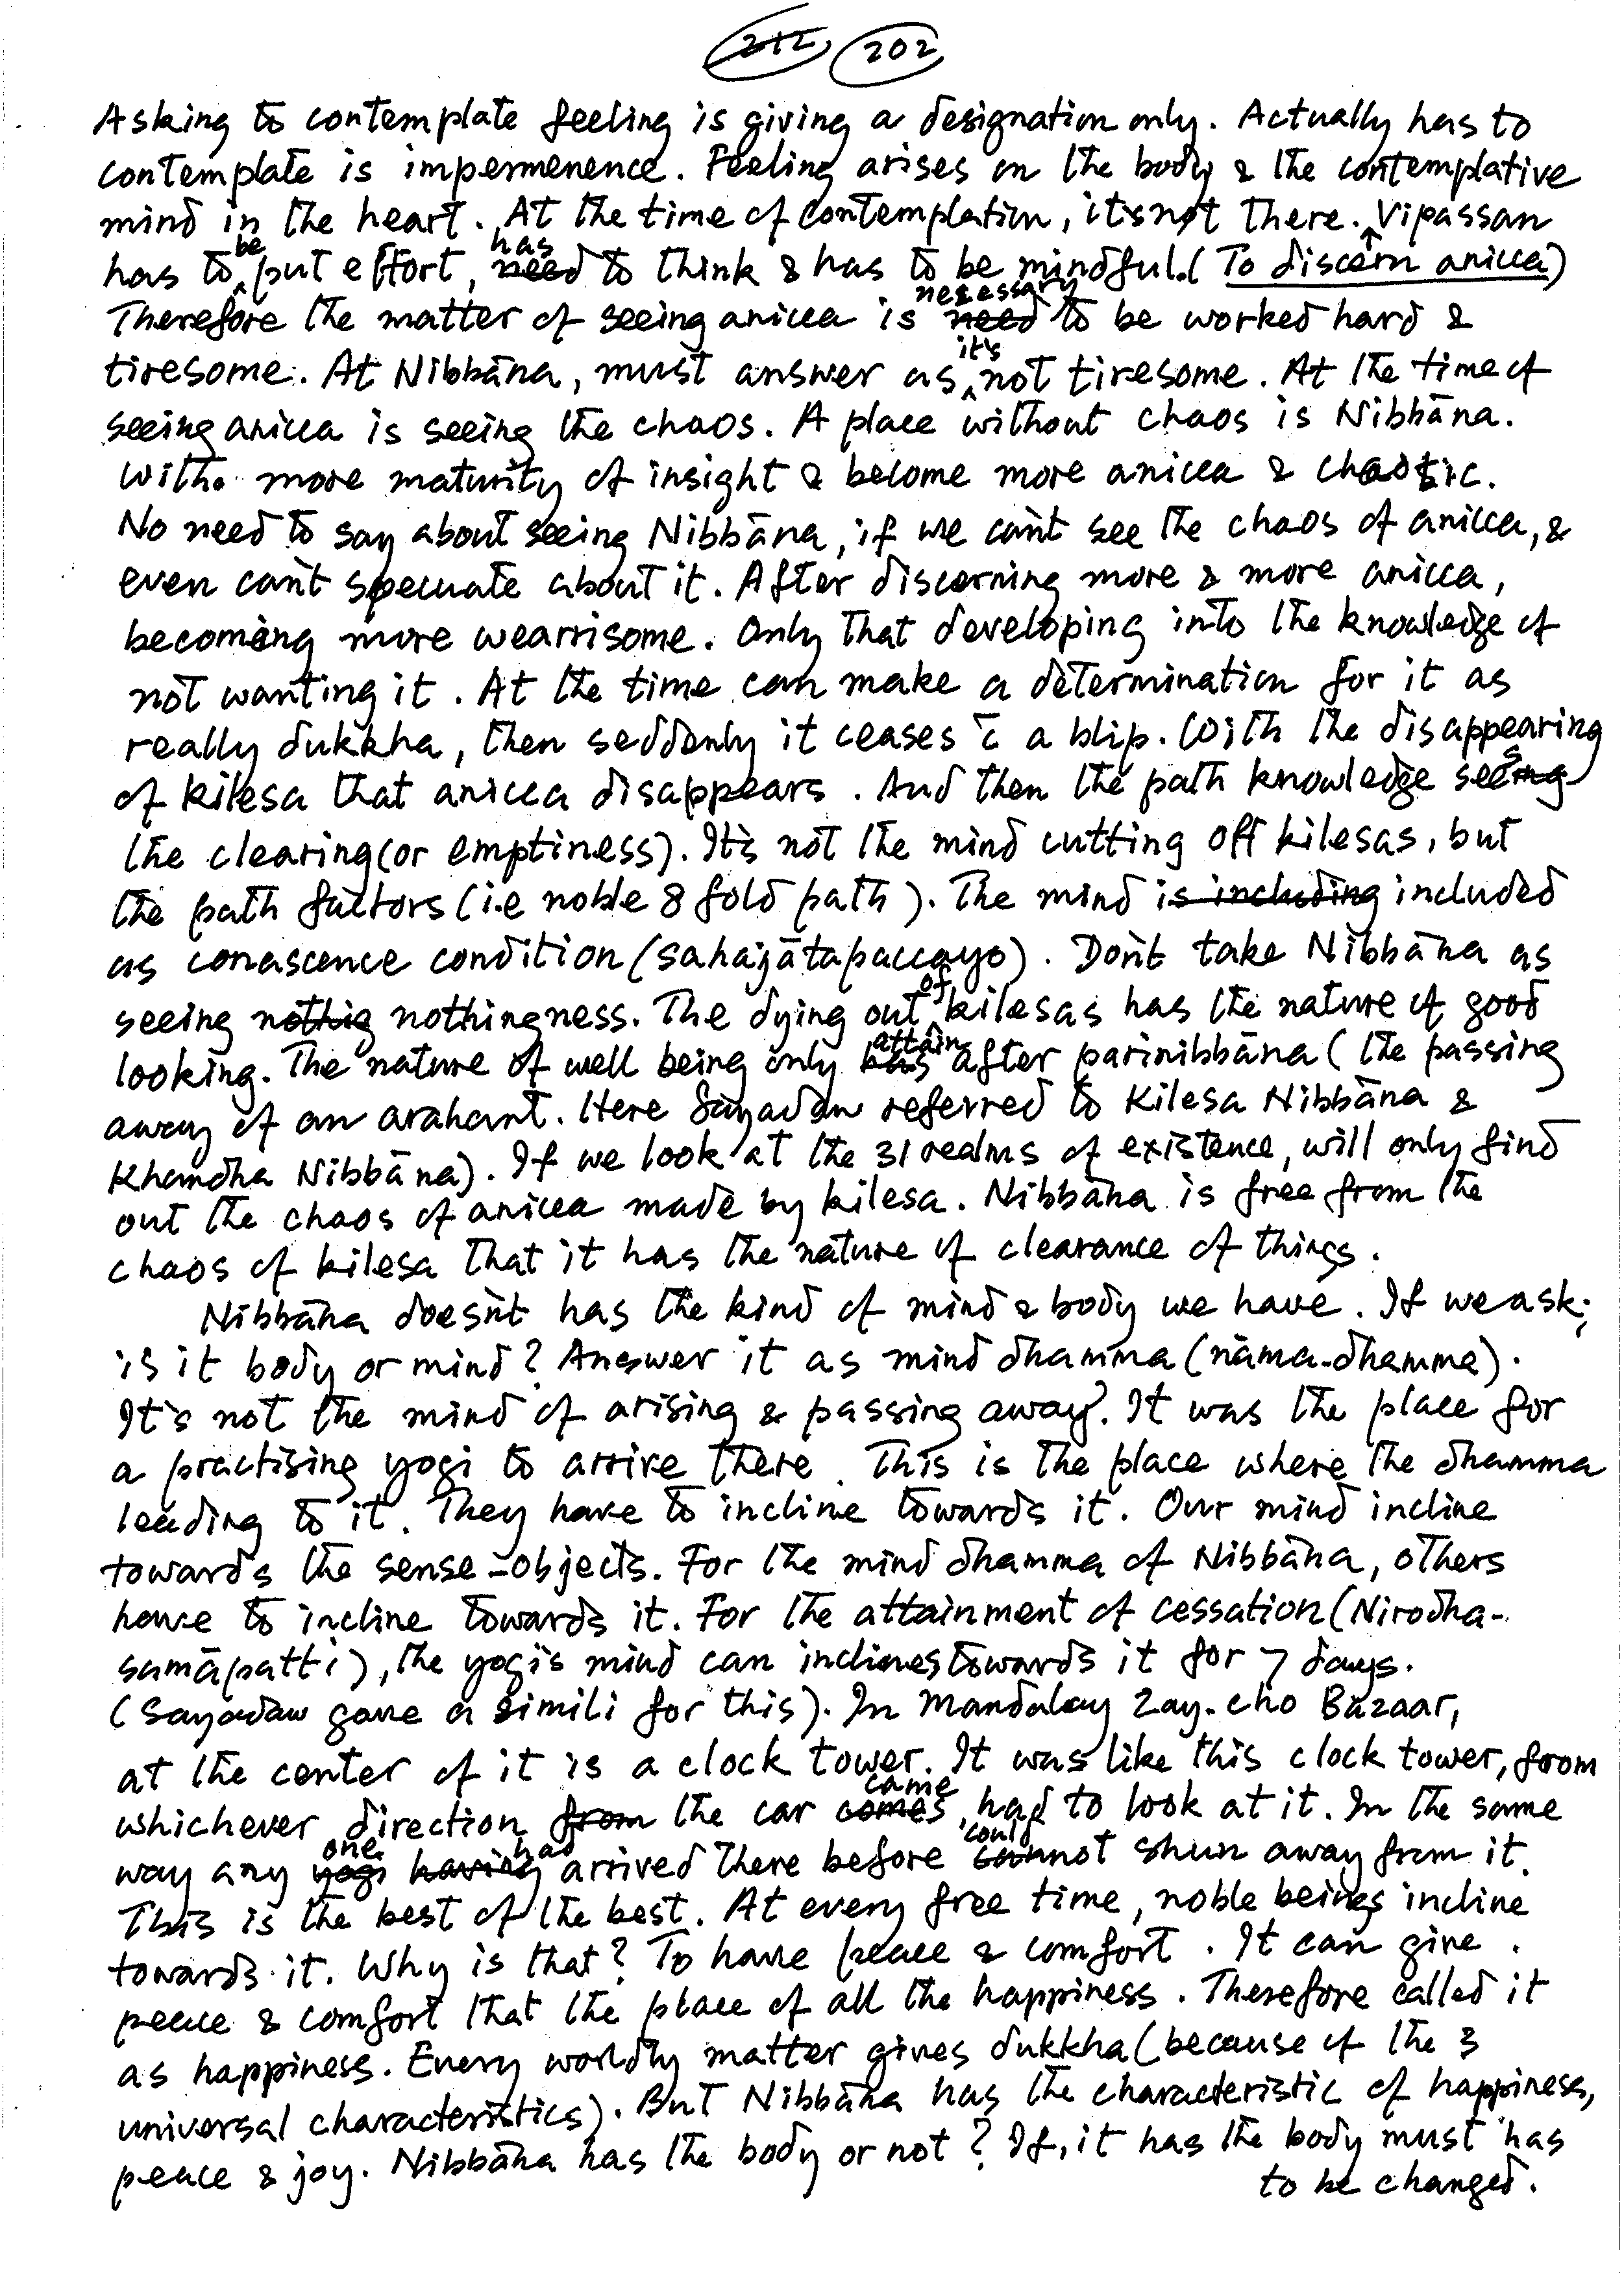 212 202
Asking to contemplate feeling is giving a designation only. Actually has to
contemplate is impermenence. Feeling arises on the body & the contemplative
mind in the heart. At the time of contemplation, it's not there. Vipassan
has to be put effort, need has to think & has to be mindful. (To discern anicca)
Therefore the matter of seeing anicca is need necessary to be worked hard &
tiresome. At Nibbāna, must answer as it's not tiresome. At the time of
seeing anicca is seeing the chaos. A place without chaos is Nibbāna.
With more maturity of insight & become more anicca & chaotic.
No need to say about seeing Nibbāna, if we can't see the chaos of anicca, &
even can't specuate about it. After discerning more & more anicca,
becoming more wearrisome. Only that developing into the knowledge of
not wanting it. At the time can make a determination for it as
really dukkha, then seddenly it ceases c̄ a blip. With the disappearing
of kilesa that anicca disappears. And then the path knowledge sees
the clearing (or emptiness). It's not the mind cutting off kilesas, but
the path factors (i.e noble 8 fold path). The mind is including included
as conascence condition (sahajātapaccayo). Don't take Nibbāna as
seeing nothig nothingness. The dying out of kilesas has the nature of good
looking. The nature of well being only has attain after parinibbāna (the passing
away of an arahant. Here Sayadaw referred to Kilesa Nibbāna &
Khandha Nibbāna). If we look at the 31 realms of existence, will only find
out the chaos of anicca made by kilesa. Nibbāna is free from the
chaos of kilesa that it has the nature of clearance of things.
Nibbāna doesn't has the kind of mind & body we have. If we ask;
is it body or mind? Answer it as mind dhamma (nāma-dhamma).
It's not the mind of arising & passing away. It was the place for
a practising yogi to arrive there. This is the place where the dhamma
leading to it. They have to incline towards it. Our mind incline
towards the sense-objects. For the mind dhamma of Nibbāna, others
have to incline towards it. For the attainment of cessation (Nirodha-
samāpatti), the yogi's mind can inclines towards it for 7 days.
(Sayadaw gave a simili for this). In Mandalay Zay-cho Bazaar,
at the center of it is a clock tower. It was like this clock tower, from
whichever direction from the car comes came, had to look at it. In the same
way any yogi one having had arrived there before cannot could not shun away from it.
This is the best of the best. At every free time, noble beings incline
towards it. Why is that? To have peace & comfort. It can give
peace & comfort that the place of all the happiness. Therefore called it
as happiness. Every worldly matter gives dukkha (because of the 3
universal characteristics). But Nibbāna has the characteristic of happiness,
peace & joy. Nibbāna has the body or not? If, it has the body must has
to be changed.